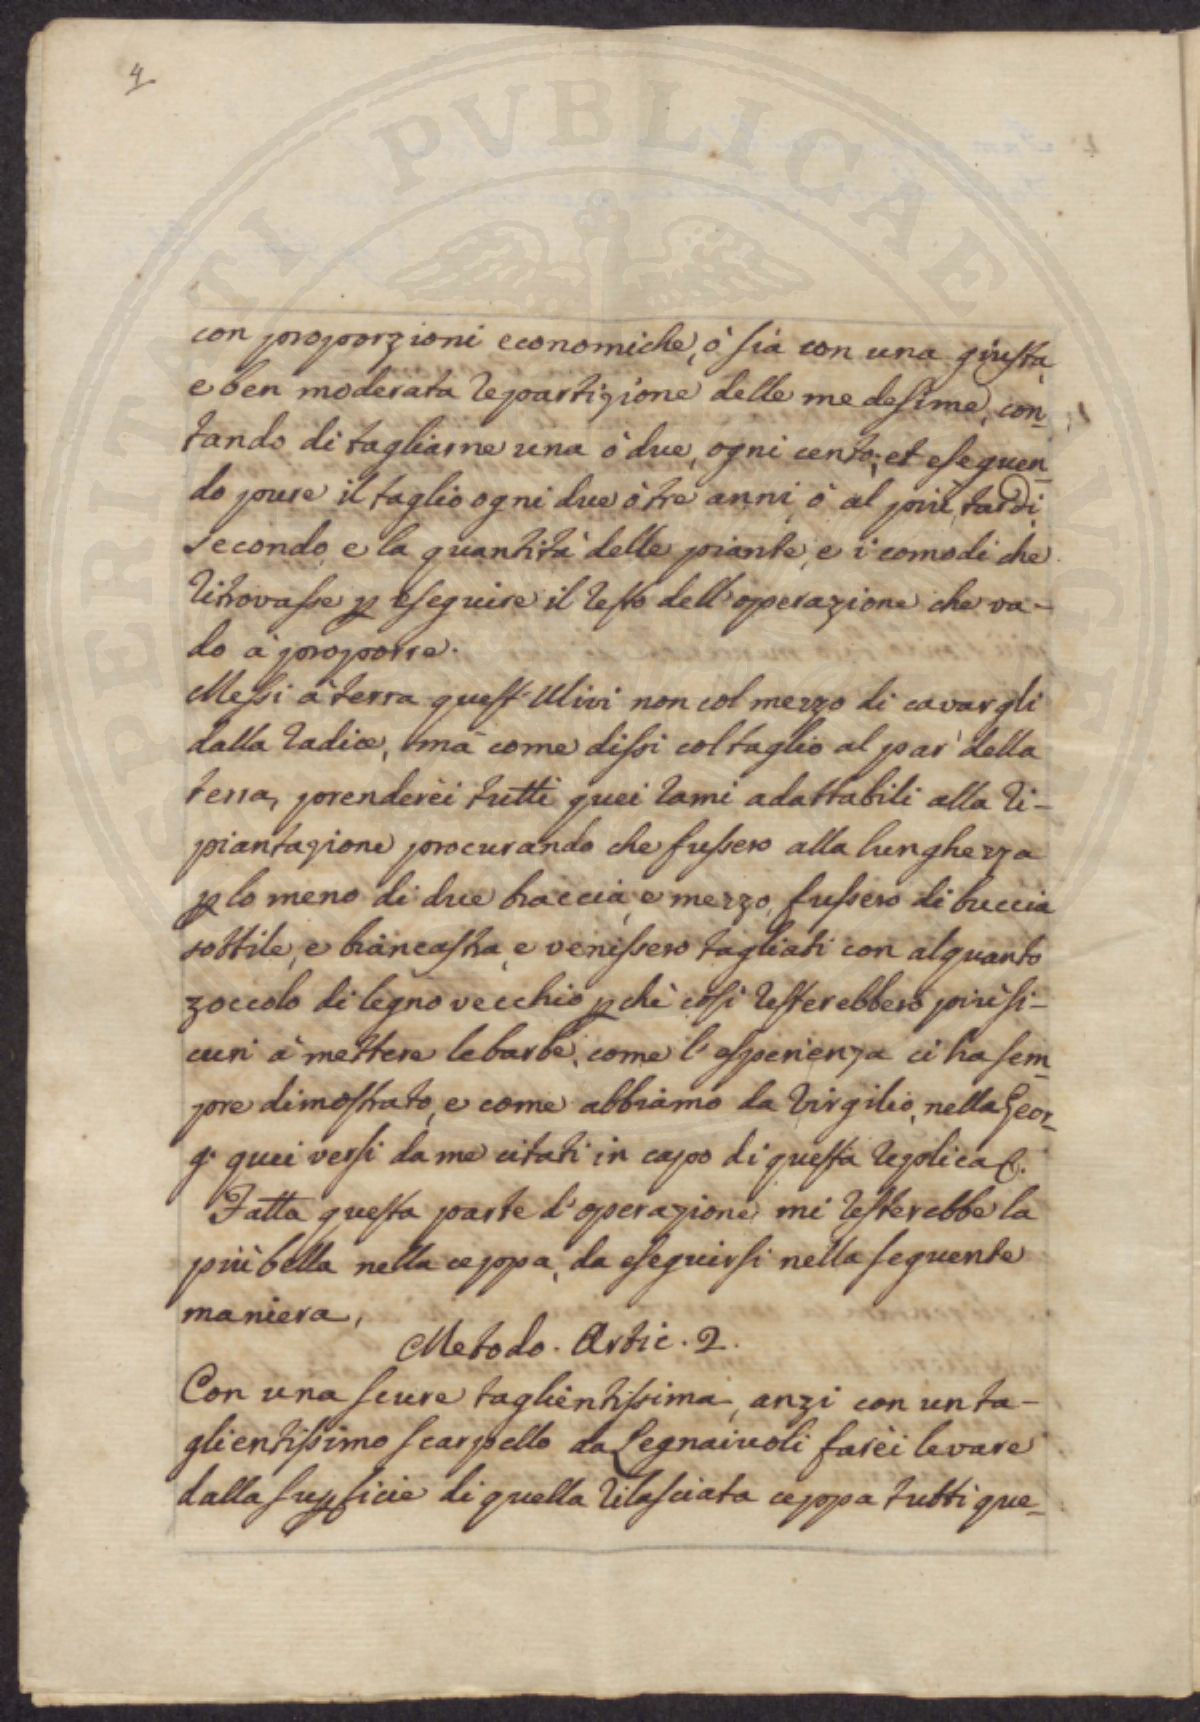 4
con proporzioni economiche, ò sia con una giusta,
e ben moderata repartizione delle medesime, con-
tando di tagliarne una ò due, ogni cento; et eseguen-
do pure il taglio ogni due ò tre anni, ò al più tardi
secondo, e la quantità delle piante, e i comodi che
ritrovasse p eseguire il resto dell'operazione che va-
do à proporre.
Messi à terra quest'Ulivi non col mezzo di cavargli
dalla radice, mà come dissi col taglio al par della
terra, prenderèi tutti quei rami adattabili alla ri-
piantazione procurando che fussero alla lunghezza
p lo meno di due braccia, e mezzo, fussero di buccia
sottile, e biancastra, e venissero tagliati con alquanto
zoccolo di legno vecchio pchè così resterebbero più si-
curi à mettere le barbe, come l'esperienza ci ha sem-
pre dimostrato, e come abbiamo da Virgilio, nella Geor-
g: quei versi da me citati in capo di questa replica &.
Fatta questa parte d'operazione, mi resterebbe la
più bella nella ceppa, da eseguirsi nella seguente
maniera,
Metodo. Artic. 2.
Con una scure taglientissima, anzi con un ta-
glientissimo scarpello da Legnaiuoli farèi levare
dalla supficie di quella rilasciata ceppa tutti que-
PERITATI PVBLICAE